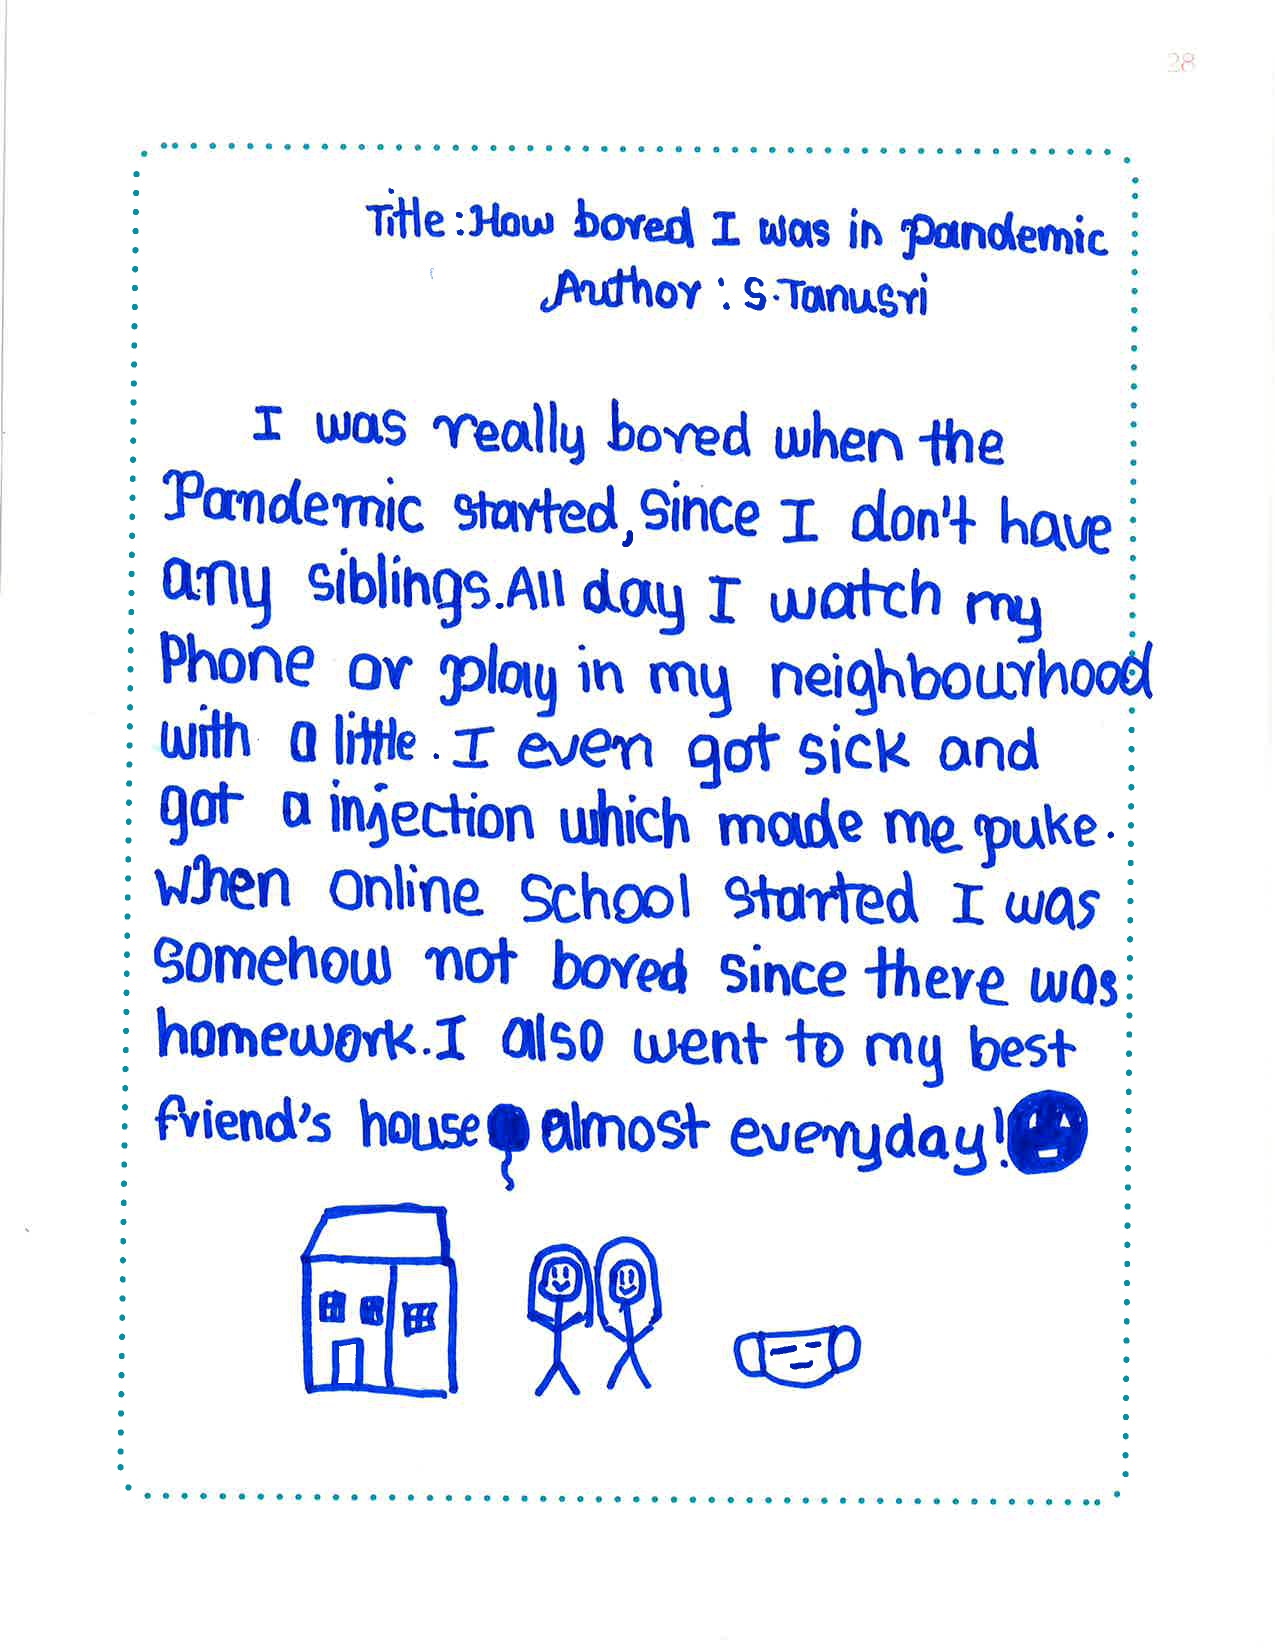 28
Title: How bored I was in pandemic
Author: S.Tanusri
I was really bored when the
Pandemic started, Since I don't have
any siblings. All day I watch my
Phone or play in my neighbourhood
with a little. I even got sick and
got a injection which made me puke.
When Online School Started I was
Somehow not bored Since there was
homework. I also went to my best
friend's house almost everyday!